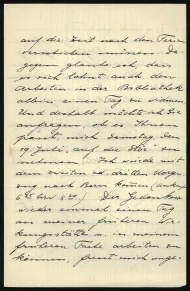 auf die Zeit nach den Ferien
verschieben müssen. Da-
gegen glaube ich, dass
es sich lohnt auch den
Arbeiten in der Bibliothek
allein einen Tag zu widmen
Und deshalb möchte ich Sie
anfragen ob es Ihnen
passt mich Samstag, den
19. Juli, auf der
nehmen. Ich würde mit
dem zweiten od. dritten Morgen-
zug nach Bern kommen (ankunft
Der Gedanke
wieder einmal einen Tag
an meiner früheren Wir-
kungsstätte u. in meinem
früheren Fache arbeiten zu
können, freut mich unge-